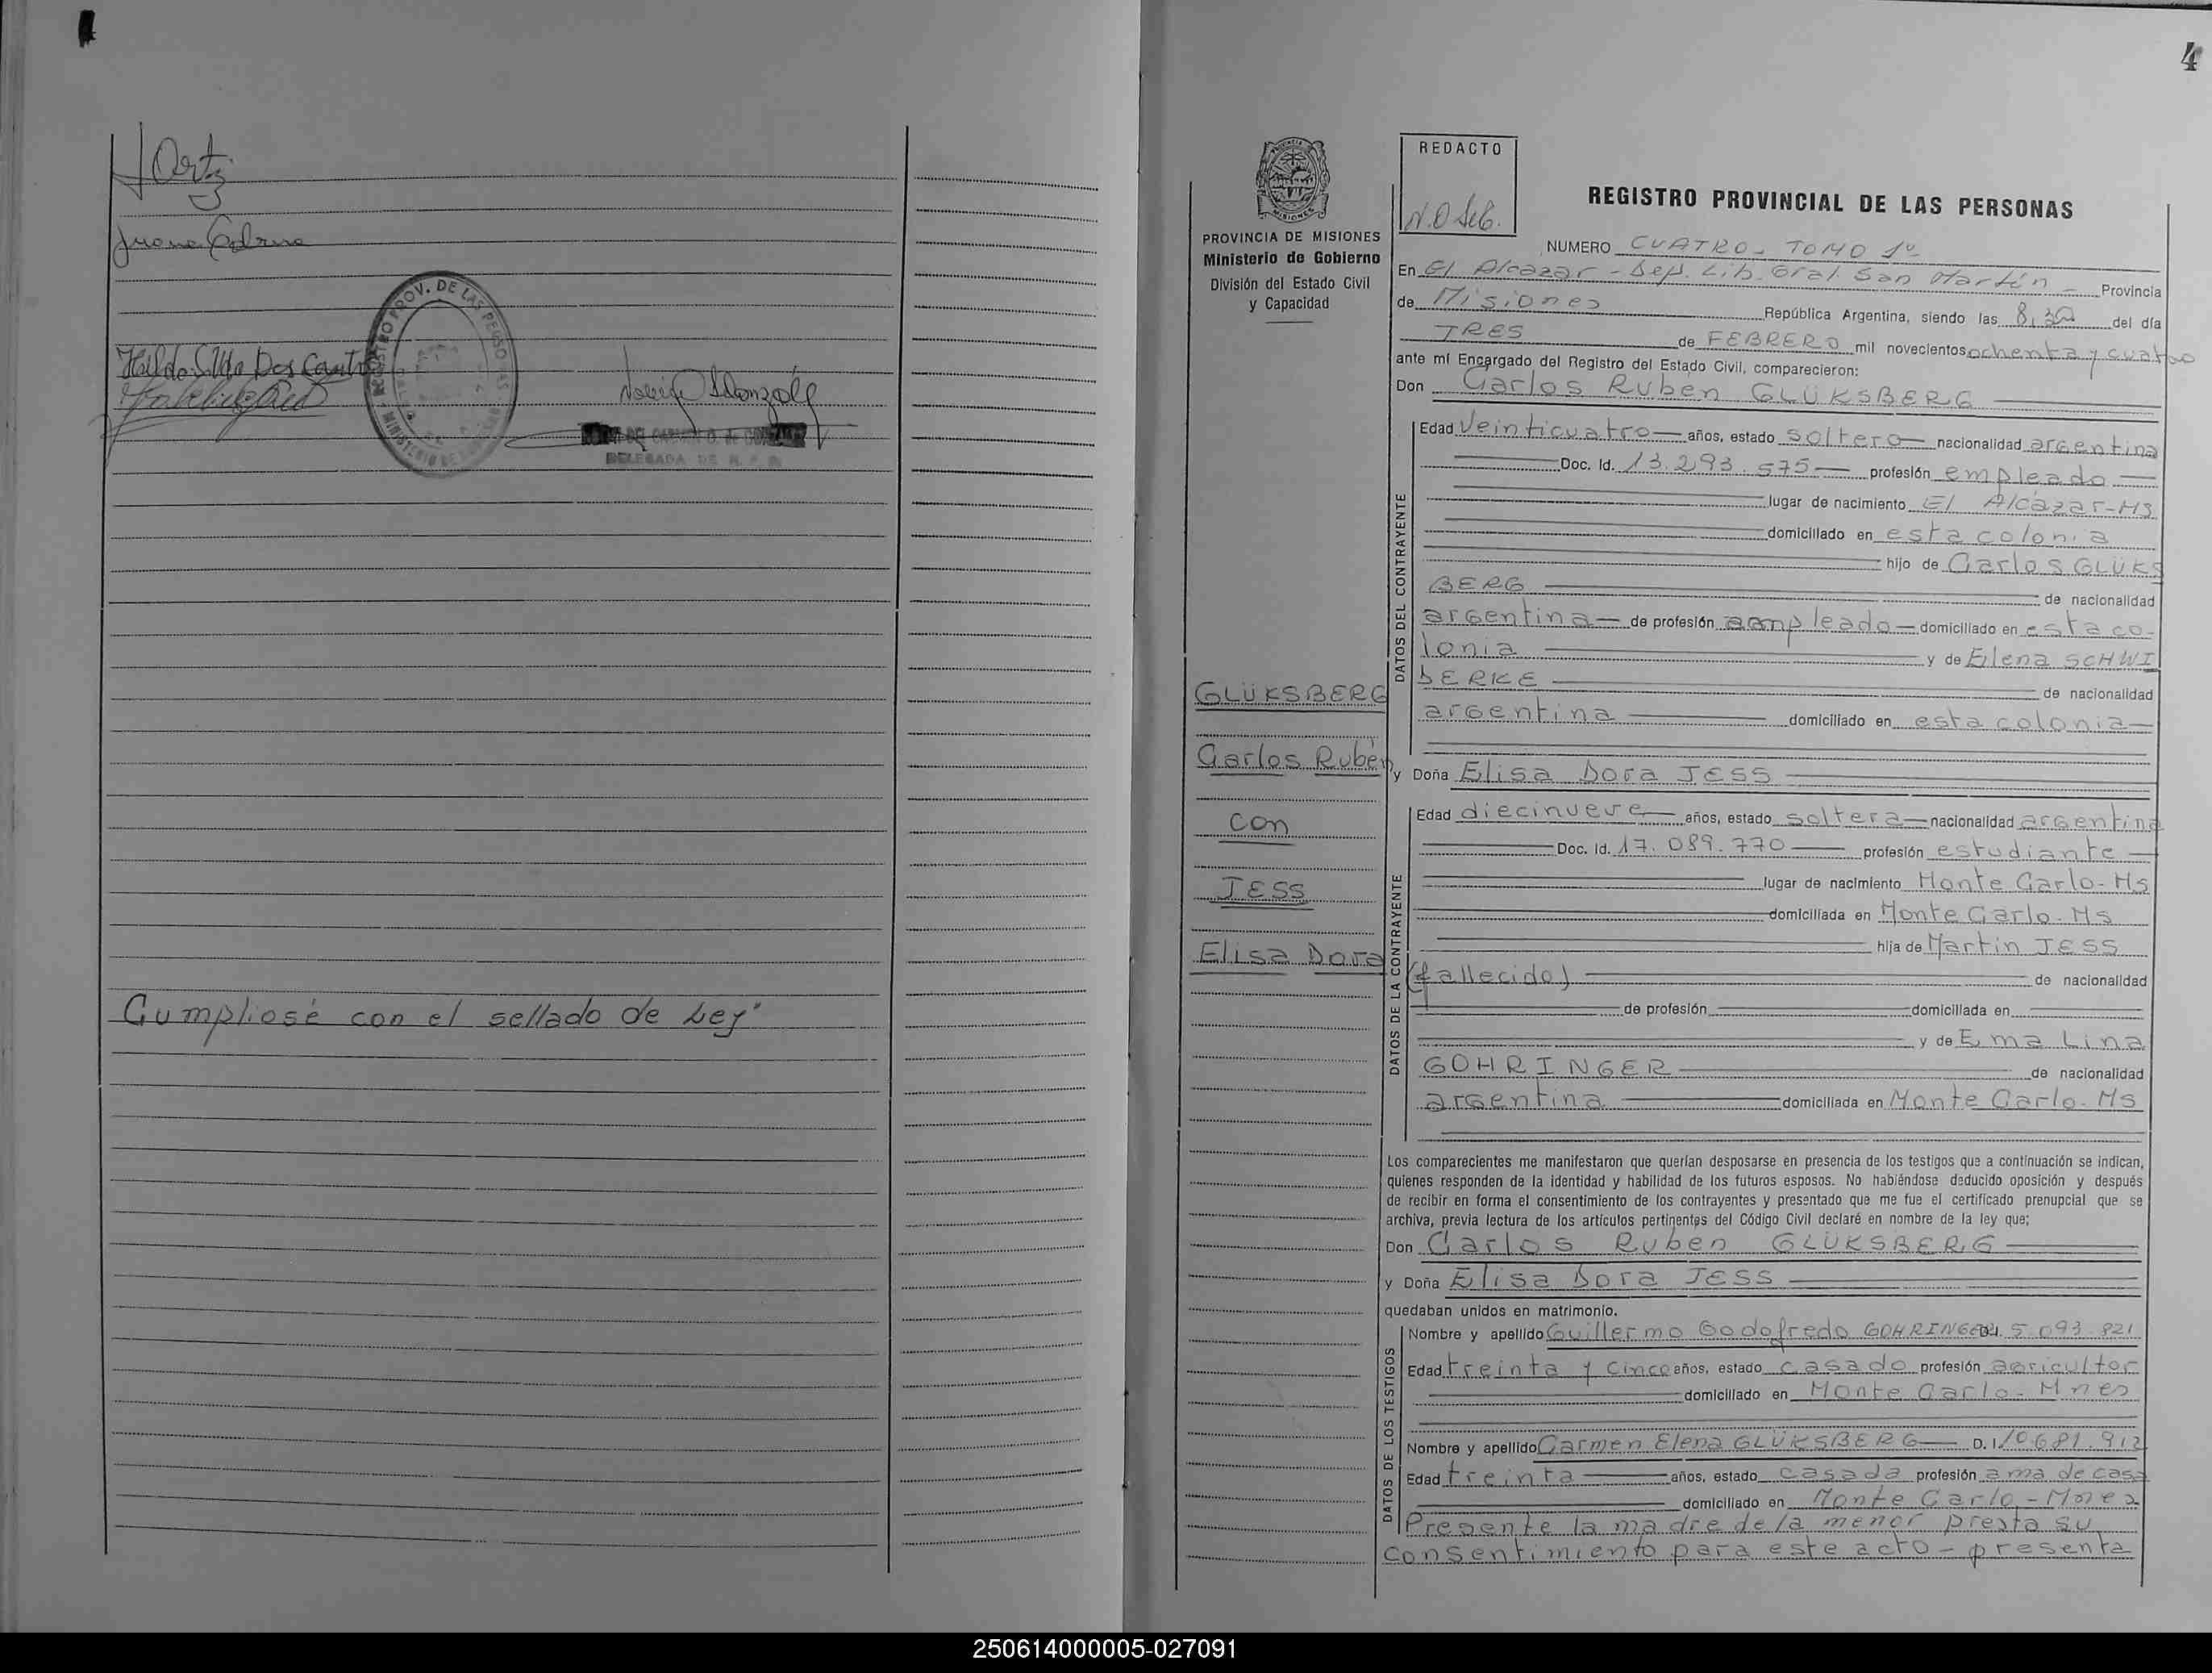 4
JOrtiz
Juana
Hildo Silva Dos Santos
REGISTRO PROV. DE LAS PERSONAS
MINISTERIO DE GOBIERNO
DEL CARMEN G. de GONZALEZ
DELEGADA DE R. P. P.
Cumpliose con el sellado de Ley"
PROVINCIA DE MISIONES
Ministerio de Gobierno
División del Estado Civil
y Capacidad
GLÜKSBERG
Carlos Rubén
con
JESS
Elisa Dora
REDACTO
REGISTRO PROVINCIAL DE LAS PERSONAS
NUMERO CUATRO - TOMO 1º
En El Alcazar - Dep. Lib. Gral. San Martín - Provincia
de Misiones República Argentina, siendo las 8,30 del día
TRES de FEBRERO mil novecientos ochenta y cuatro
ante mí Encargado del Registro del Estado Civil, comparecieron:
Don Carlos Ruben GLÜKSBERG
DATOS DEL CONTRAYENTE
Edad Veinticuatro años, estado soltero nacionalidad argentina
Doc. Id. 13.293.575 profesión empleado
lugar de nacimiento El Alcazar-Ms
domiciliado en esta colonia
hijo de Carlos GLÜKS
BERG de nacionalidad
argentina de profesión empleado domiciliado en esta co-
lonia y de Elena SCHWI
DERKE de nacionalidad
argentina domiciliado en esta colonia
y Doña Elisa Dora JESS
DATOS DE LA CONTRAYENTE
Edad diecinueve años, estado soltera nacionalidad argentina
Doc. Id. 17.089.770 profesión estudiante
lugar de nacimiento Monte Carlo-Ms
domiciliada en Monte Carlo-Ms
hija de Martin JESS
(fallecido) de nacionalidad
de profesión domiciliada en
y de Ema Lina
GOHRINGER de nacionalidad
argentina domiciliada en Monte Carlo-Ms
Los comparecientes me manifestaron que querían desposarse en presencia de los testigos que a continuación se indican,
quienes responden de la identidad y habilidad de los futuros esposos. No habiéndose deducido oposición y después
de recibir en forma el consentimiento de los contrayentes y presentado que me fue el certificado prenupcial que se
archiva, previa lectura de los artículos pertinentes del Código Civil declaré en nombre de la ley que;
Don Carlos Ruben GLÜKSBERG
y Doña Elisa Dora JESS
quedaban unidos en matrimonio.
DATOS DE LOS TESTIGOS
Nombre y apellido Guillermo Godofredo GOHRINGER D.I. 5.093.821
Edad treinta y cinco años, estado casado profesión agricultor
domiciliado en Monte Carlo-Mnes
Nombre y apellido Carmen Elena GLÜKSBERG D.I 10.681.912
Edad treinta años, estado casada profesión ama de casa
domiciliado en Monte Carlo-Mnes
Presente la madre de la menor presta su
consentimiento para este acto - presenta
250614000005-027091